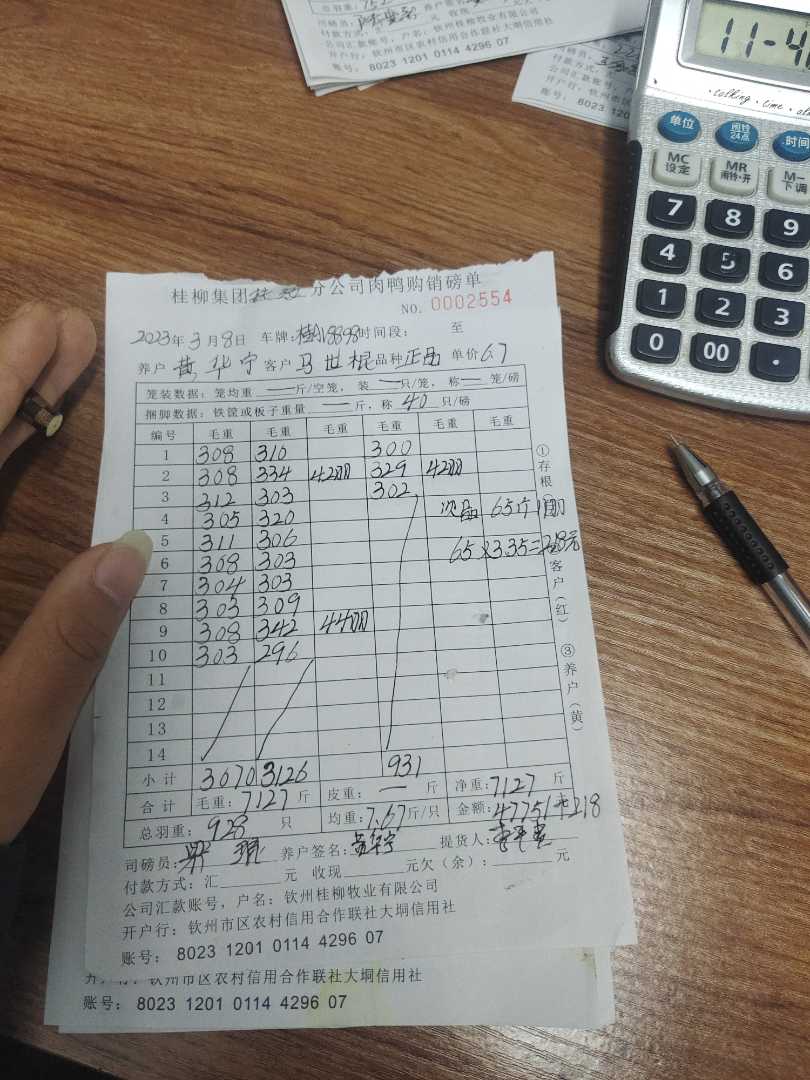 付款方式：
公司汇款账号，户名：钦州桂柳牧业有限公司
开户行：钦州市区农村信用合作联社大垌信用社
账号： 8023 1201 0114 4296 07
账号： 8023 120
11-4
talking . time . al
单位 闹铃 24点 时间
MC 设定 MR 闹铃·开 M- 下调
7 8 9
4 5 6
1 2 3
0 00 .
桂柳集团 分公司肉鸭购销磅单
NO. 0002554
2023年3月8日 车牌：桂 18898 时间段： 至
养户 黄华宁 客户 马世棍 品种 正品 单价 6.7
笼装数据：笼均重 — 斤/空笼，装 — 只/笼，称 — 笼/磅
捆脚数据：铁镗或板子重量 — 斤，称 40 只/磅
编号 毛重 毛重 毛重 毛重 毛重 毛重
1 308 310 300
2 308 334 42只 329 42只
3 312 303 302
4 305 320 次品 65斤
5 311 306 65×3.35=218元
6 308 303
7 304 303
8 303 309
9 308 342 44只
10 303 296
11
12
13
14
小计 3070 3126 931
合计 毛重：7127 斤 皮重：— 斤 净重：7127 斤
总羽重：928 只 均重：7.67 斤/只 金额：47751+218
司磅员： 养户签名：黄华宁 提货人：
付款方式：汇 元 收现 元欠（余）： 元
公司汇款账号，户名：钦州桂柳牧业有限公司
开户行：钦州市区农村信用合作联社大垌信用社
账号： 8023 1201 0114 4296 07
①存根
客户（红）
③养户（黄）
钦州市区农村信用合作联社大垌信用社
账号： 8023 1201 0114 4296 07